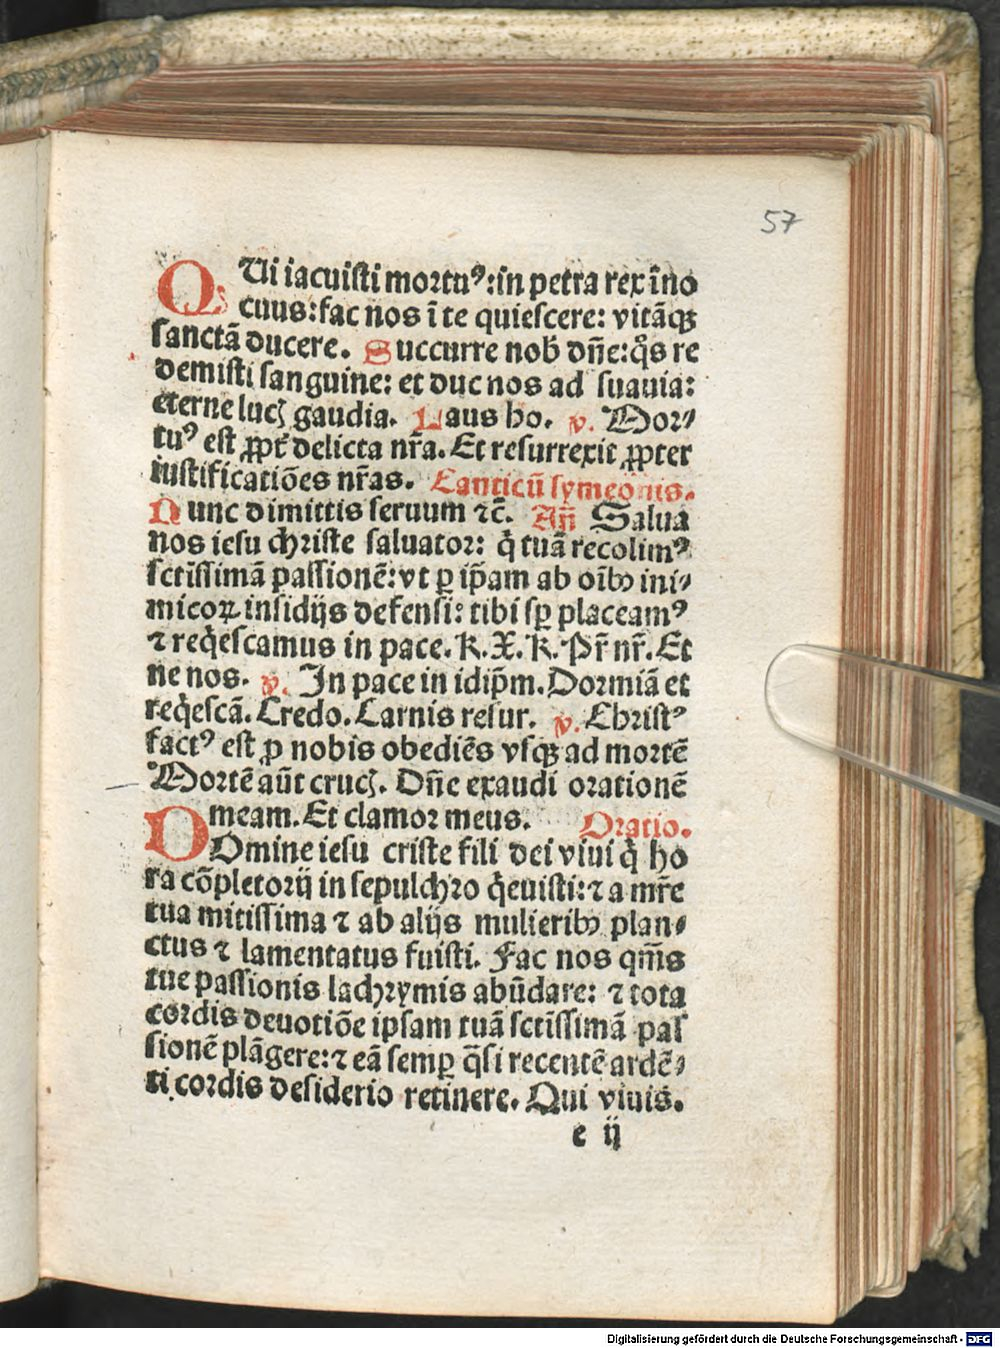 57
QUi iacuisti mortuꝰ: in petra rex ı̄no
cuus: fac nos ī te quiescere: vitāqꝫ
sanctā ducere. Succurre nob̄ dn̄e: q̄s re
demisti sanguine: et duc nos ad suauia:
eterne lucꝭ gaudia. Laus ho. v. Mor⸗
tuꝰ est ꝓpt̄ delicta nr̄a. Et resurrexit ꝓpter
iustificatiōes nr̄as. Canticū symeonis.
Nunc dimittis seruum ⁊c̄. An̄ Salua
nos iesu christe saluator: q̇ tuā recolimꝰ
sctı̄ssimā passionē: vt ꝑ ip̄am ab oı̄bꝫ ini⸗
micoꝝ insidijs defensi: tibi sꝑ placeamꝰ
⁊ req̇escamus in pace. K. X. K. Pr̄ nr̄. Et
ne nos. v. In pace in idip̄m. Dormiā et
req̇escā. Credo. Carnis resur. v. Christꝰ
factꝰ est ꝓ nobis obediēs vsqꝫ ad mortē
Mortē aūt crucꝭ. Dn̄e exaudi orationē
meam. Et clamor meus. Oratio.
DOmine iesu criste fili dei viui q̇ ho
ra cōpletorij in sepulchro q̇euisti: ⁊ a mr̄e
tua mitissima ⁊ ab alijs mulieribꝫ plan⸗
ctus ⁊ lamentatus fuisti. Fac nos qm̄s
tue passionis lachrymis abūdare: ⁊ tota
cordis deuotiōe ipsam tuā sctı̄ssimā pas
sionē plāgere: ⁊ eā semꝑ q̄si recentē ardē⸗
ti cordis desiderio retinere. Qui viuis.
e ij
Digitalisierung gefördert durch die Deutsche Forschungsgemeinschaft - DFG